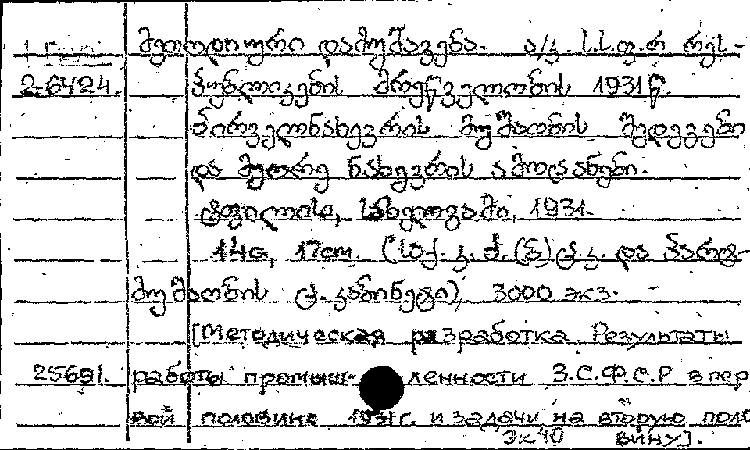 მეთოდიური დამუშავება. ა/კ. ს.ს.ფ.რ რეს-
2-6424. პუბლიკების მრეწველობის 1931 წ.
პირველ ნახევრის მუშაობის შედეგები
და მეორე ნახევრის ამოცანები.
ტფილისი, სახელგამი, 1931.
14გ, 17cm. (საქ. კ. პ. (ბ) ც.კ. და პარტ-
მუშაობის ც. კაბინეტი), 3000 экз.
[Методическая разработка Результаты
25691. работы промыш- ленности З.С.Ф.С.Р в пер
вой половине 1931 г. и задачи на вторую поло
Эк40 вину].